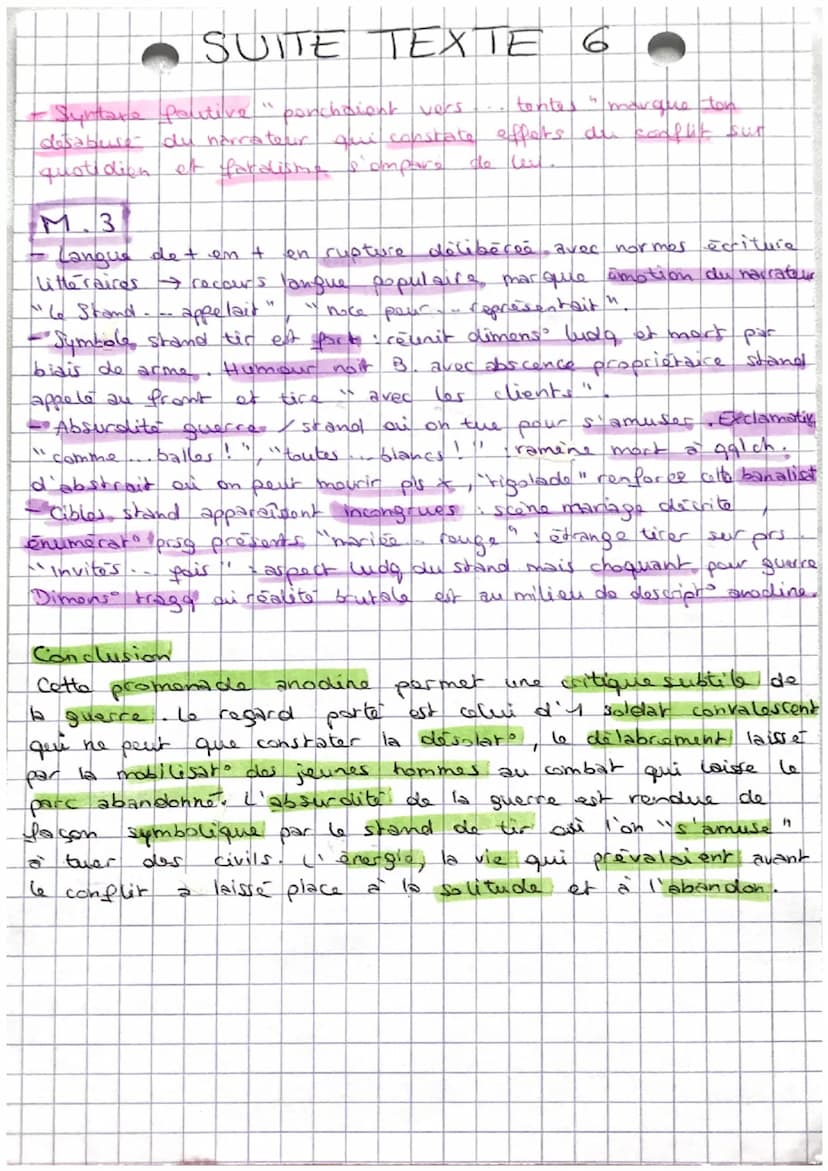 SUITE TEXTE 6
- Syntaxe fautive "penchaient vers ... tentes" marque ton
désabusé du narrateur qui constate effets du conflit sur
quotidien et fatalisme s'empare de lui.
M.3
- Langue de + en + en rupture délibérée avec normes écriture
littéraires → recours langue populaire, marque émotion du narrateur
"Le Stand ... appelait", "noce pour ... représentait".
- Symbole stand tir est fort : réunit dimens° ludq et mort par
biais de arme. Humour noir B. avec abscence propriétaire stand
appelé au front et tire "avec les clients".
- Absurdité guerre / stand où on tue pour s'amuser. Exclamativ
"comme ... balles !", "toutes ... blancs !" : ramène mort à qqlch.
d'abstrait où on peut mourir pls x, "rigolade" renforce cette banalist
- Cibles stand apparaîssent incongrues : scène mariage décrite,
énumérat° prsg présents "mariée - rouge" : étrange tirer sur prs.
"Invités ... fois" : aspect ludq du stand mais choquant pour guerre
Dimens° tragq où réalité brutale est au milieu de descript° anodine.
Conclusion
Cette promenade anodine permet une critique subtile de
la guerre. Le regard porté est celui d'1 soldat convalescent
qui ne peut que constater la désolat°, le délabrement laissé
par la mobilisat° des jeunes hommes au combat qui laisse le
parc abandonné. L'absurdité de la guerre est rendue de
façon symbolique par le stand de tir où l'on "s'amuse"
à tuer des civils. L'énergie, la vie qui prévalaient avant
le conflit a laissé place à la solitude et à l'abandon.